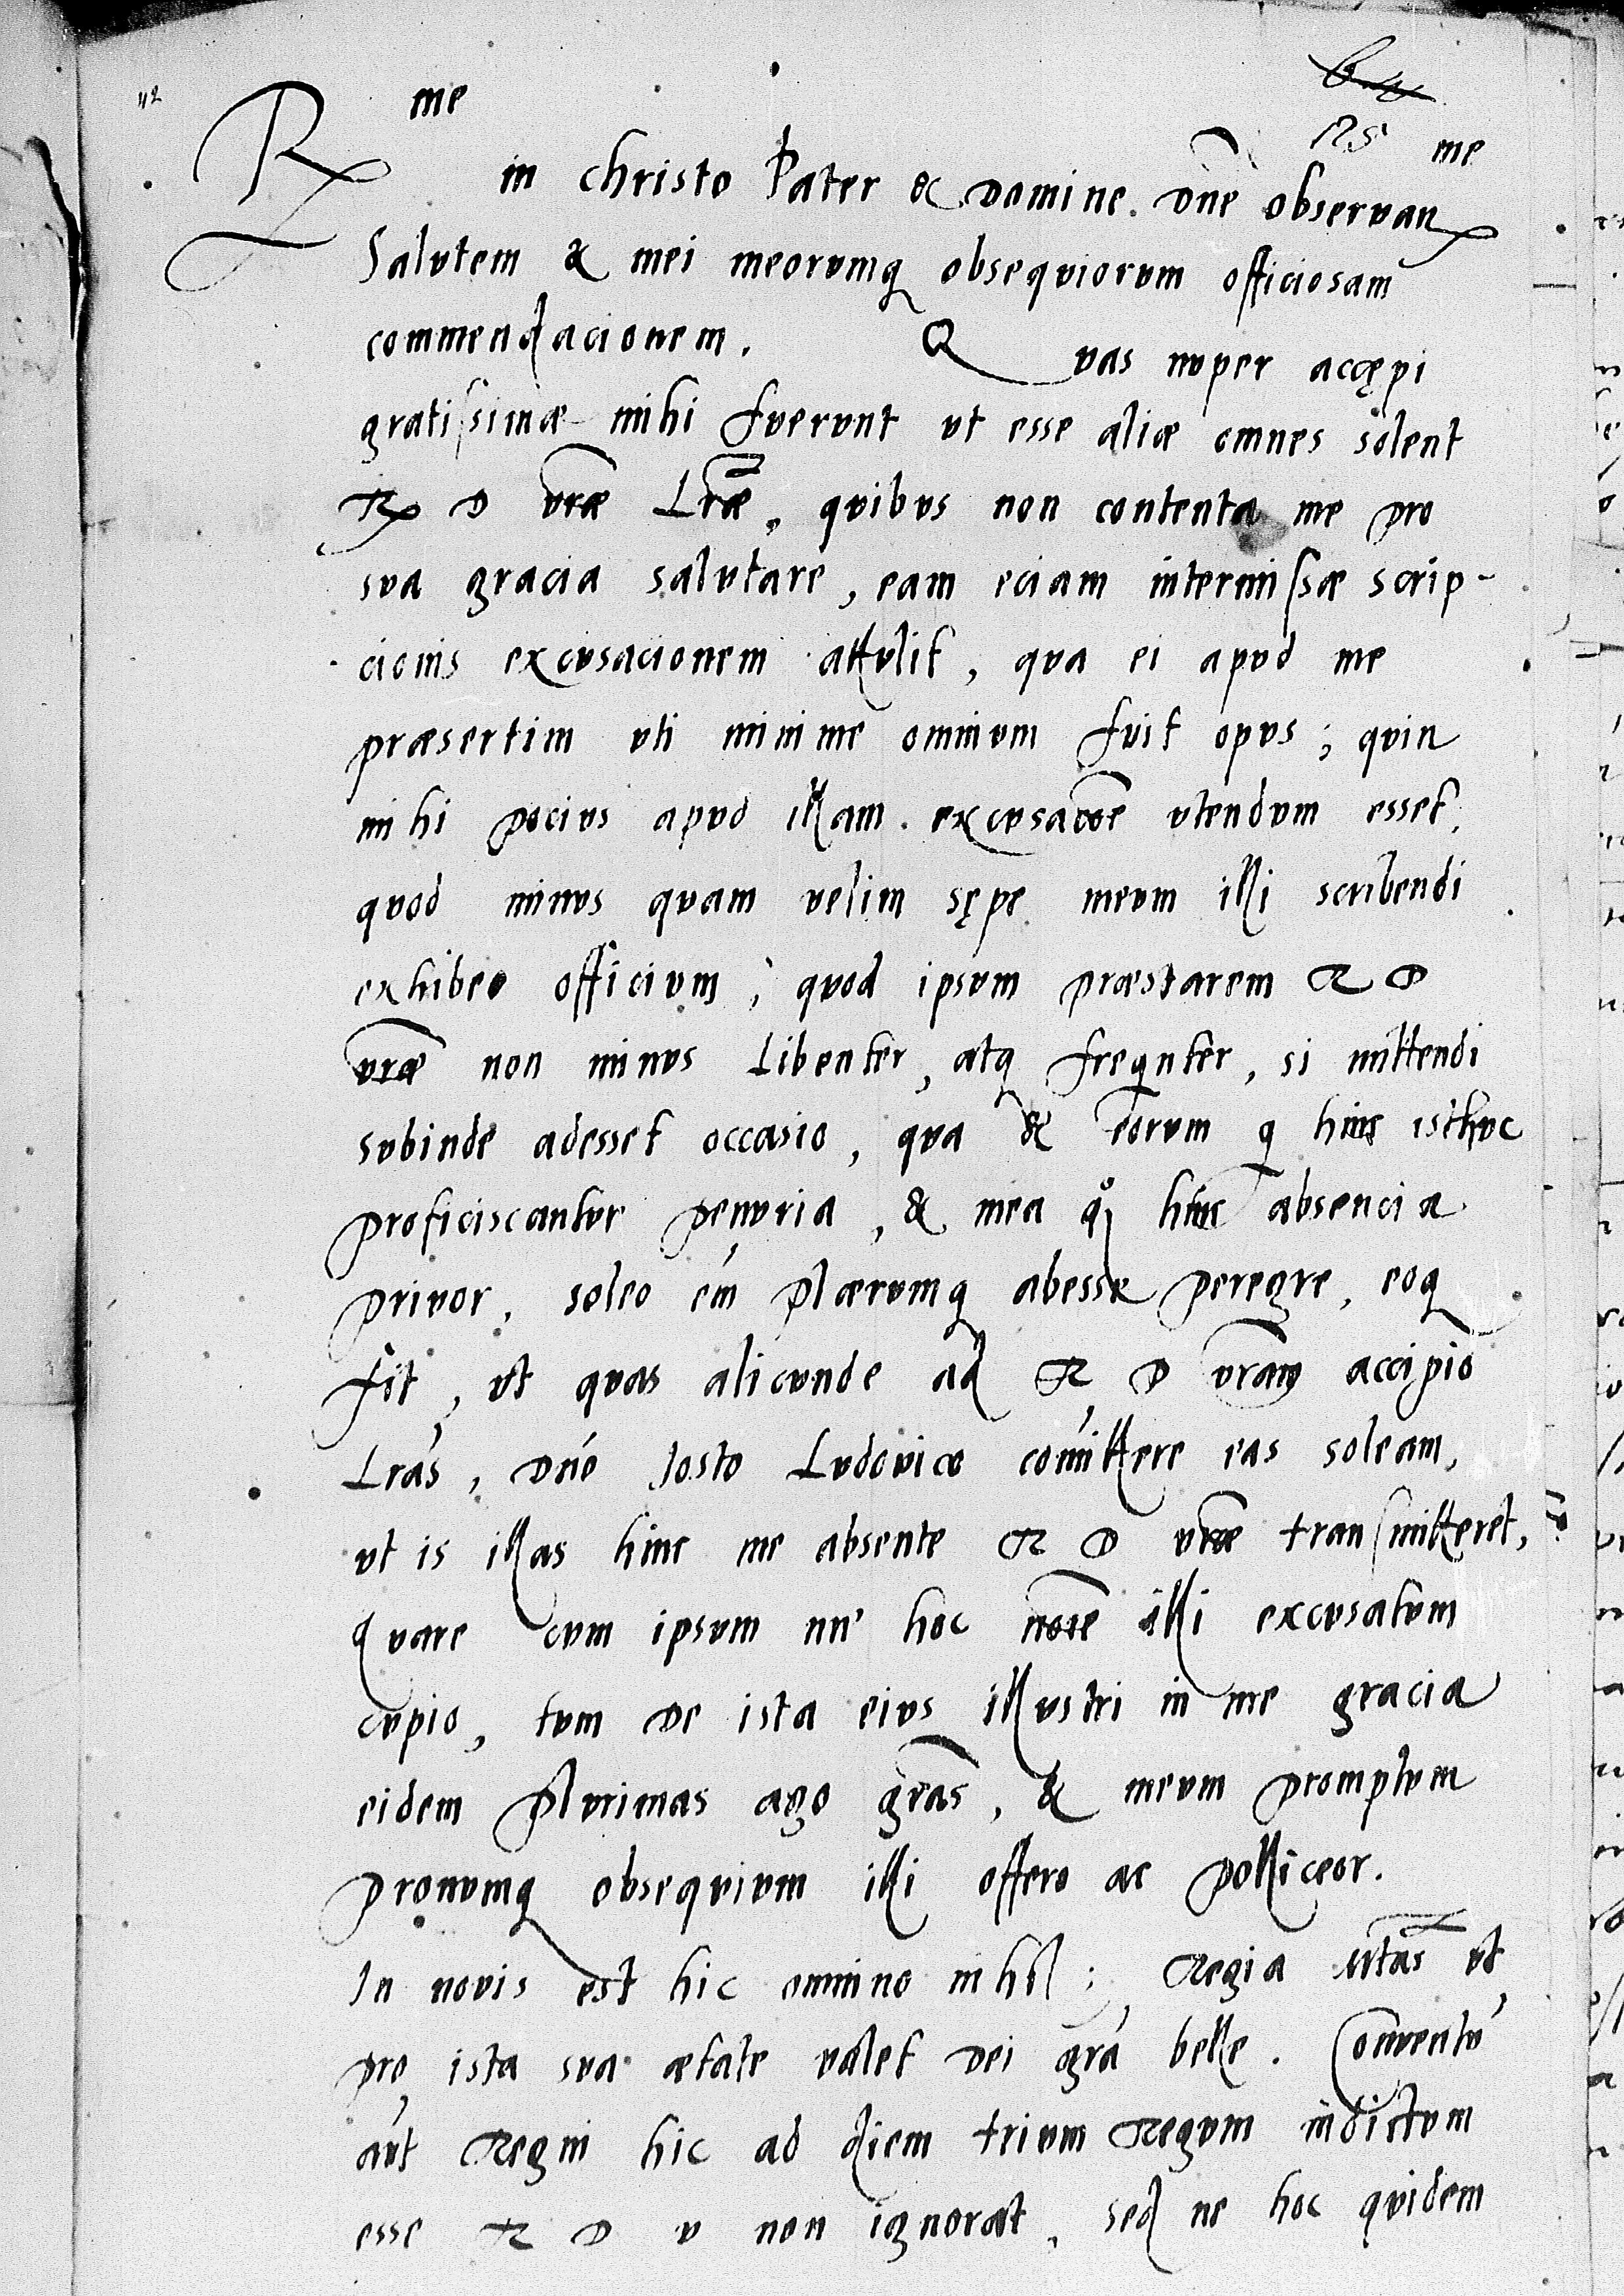 112
125
R me in christo Pater & domine. dn̄e observan me
Salutem & mei meorumq obsequiorum officiosam
commendacionem. Quas nuper accępi
gratissimæ mihi fuerunt ut esse aliæ omnes solent
R D vræ Lræ, quibus non contenta me pro
sua gracia salutare, eam eciam intermissæ scrip-
cionis excusacionem attulit, qua ei apud me
præsertim uti minime omnium fuit opus; quin
mihi pocius apud illam excusacōe utendum esset,
quod minus quam velim sępe meum illi scribendi
exhibeo officium; quod ipsum præstarem R D
vræ non minus Libenter, atq freqnter, si mittendi
subinde adesset occasio, qua & eorum q hinc isthuc
proficiscantur penuria, & mea qͦq hinc absencia
privor, soleo em̄ plærumq abesse peregre, eoq
fit, ut quas alicunde ad R D vram accipio
Lrās, dnō Josto Ludovico com̄ittere eas soleam,
ut is illas hinc me absente R D vræ transmitteret,
quare cum ipsum nn̄ hoc noīe illi excusatum
cupio, tum de ista eius illustri in me gracia
eidem plurimas ago grās, & meum promptum
pronumq obsequium illi offero ac polliceor.
In novis est hic omnino nihil; Regia Mtas ut
pro ista sua ætate valet dei grā belle. Conventū
aūt Regni hic ad diem trium Regum indictum
esse R D v non ignorat, sed ne hoc quidem